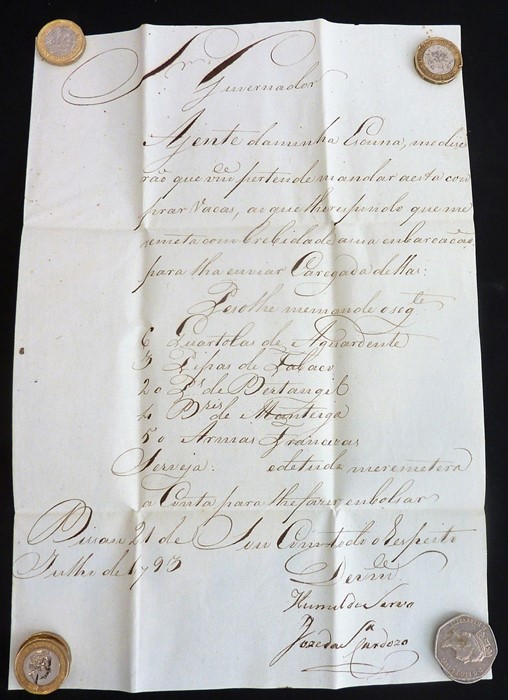 Snr.
Guvernador
Agente daminha Escuna, medise
rão que vm pertende mandar aesta com
prar Vacas, ao que lhe respondo que me
remeta com brebidade asua enbarcacão
para lha enviar Caregada dellas:
Pesolhe memande oseg.te
6 Quartolas de Agoardente
3 Pipas de Tabaco
20 P.s de Bertangil
4 B.ris de Manteiga
50 Armas Francezas
Serveja: edetudo meremetera
a Conta para lhefazer enbolsar
Bisau 21 de Sou Comtodo o Respeito
Julho de 1793
De vm.
Humilde Servo
Joze da S.a Cardozo